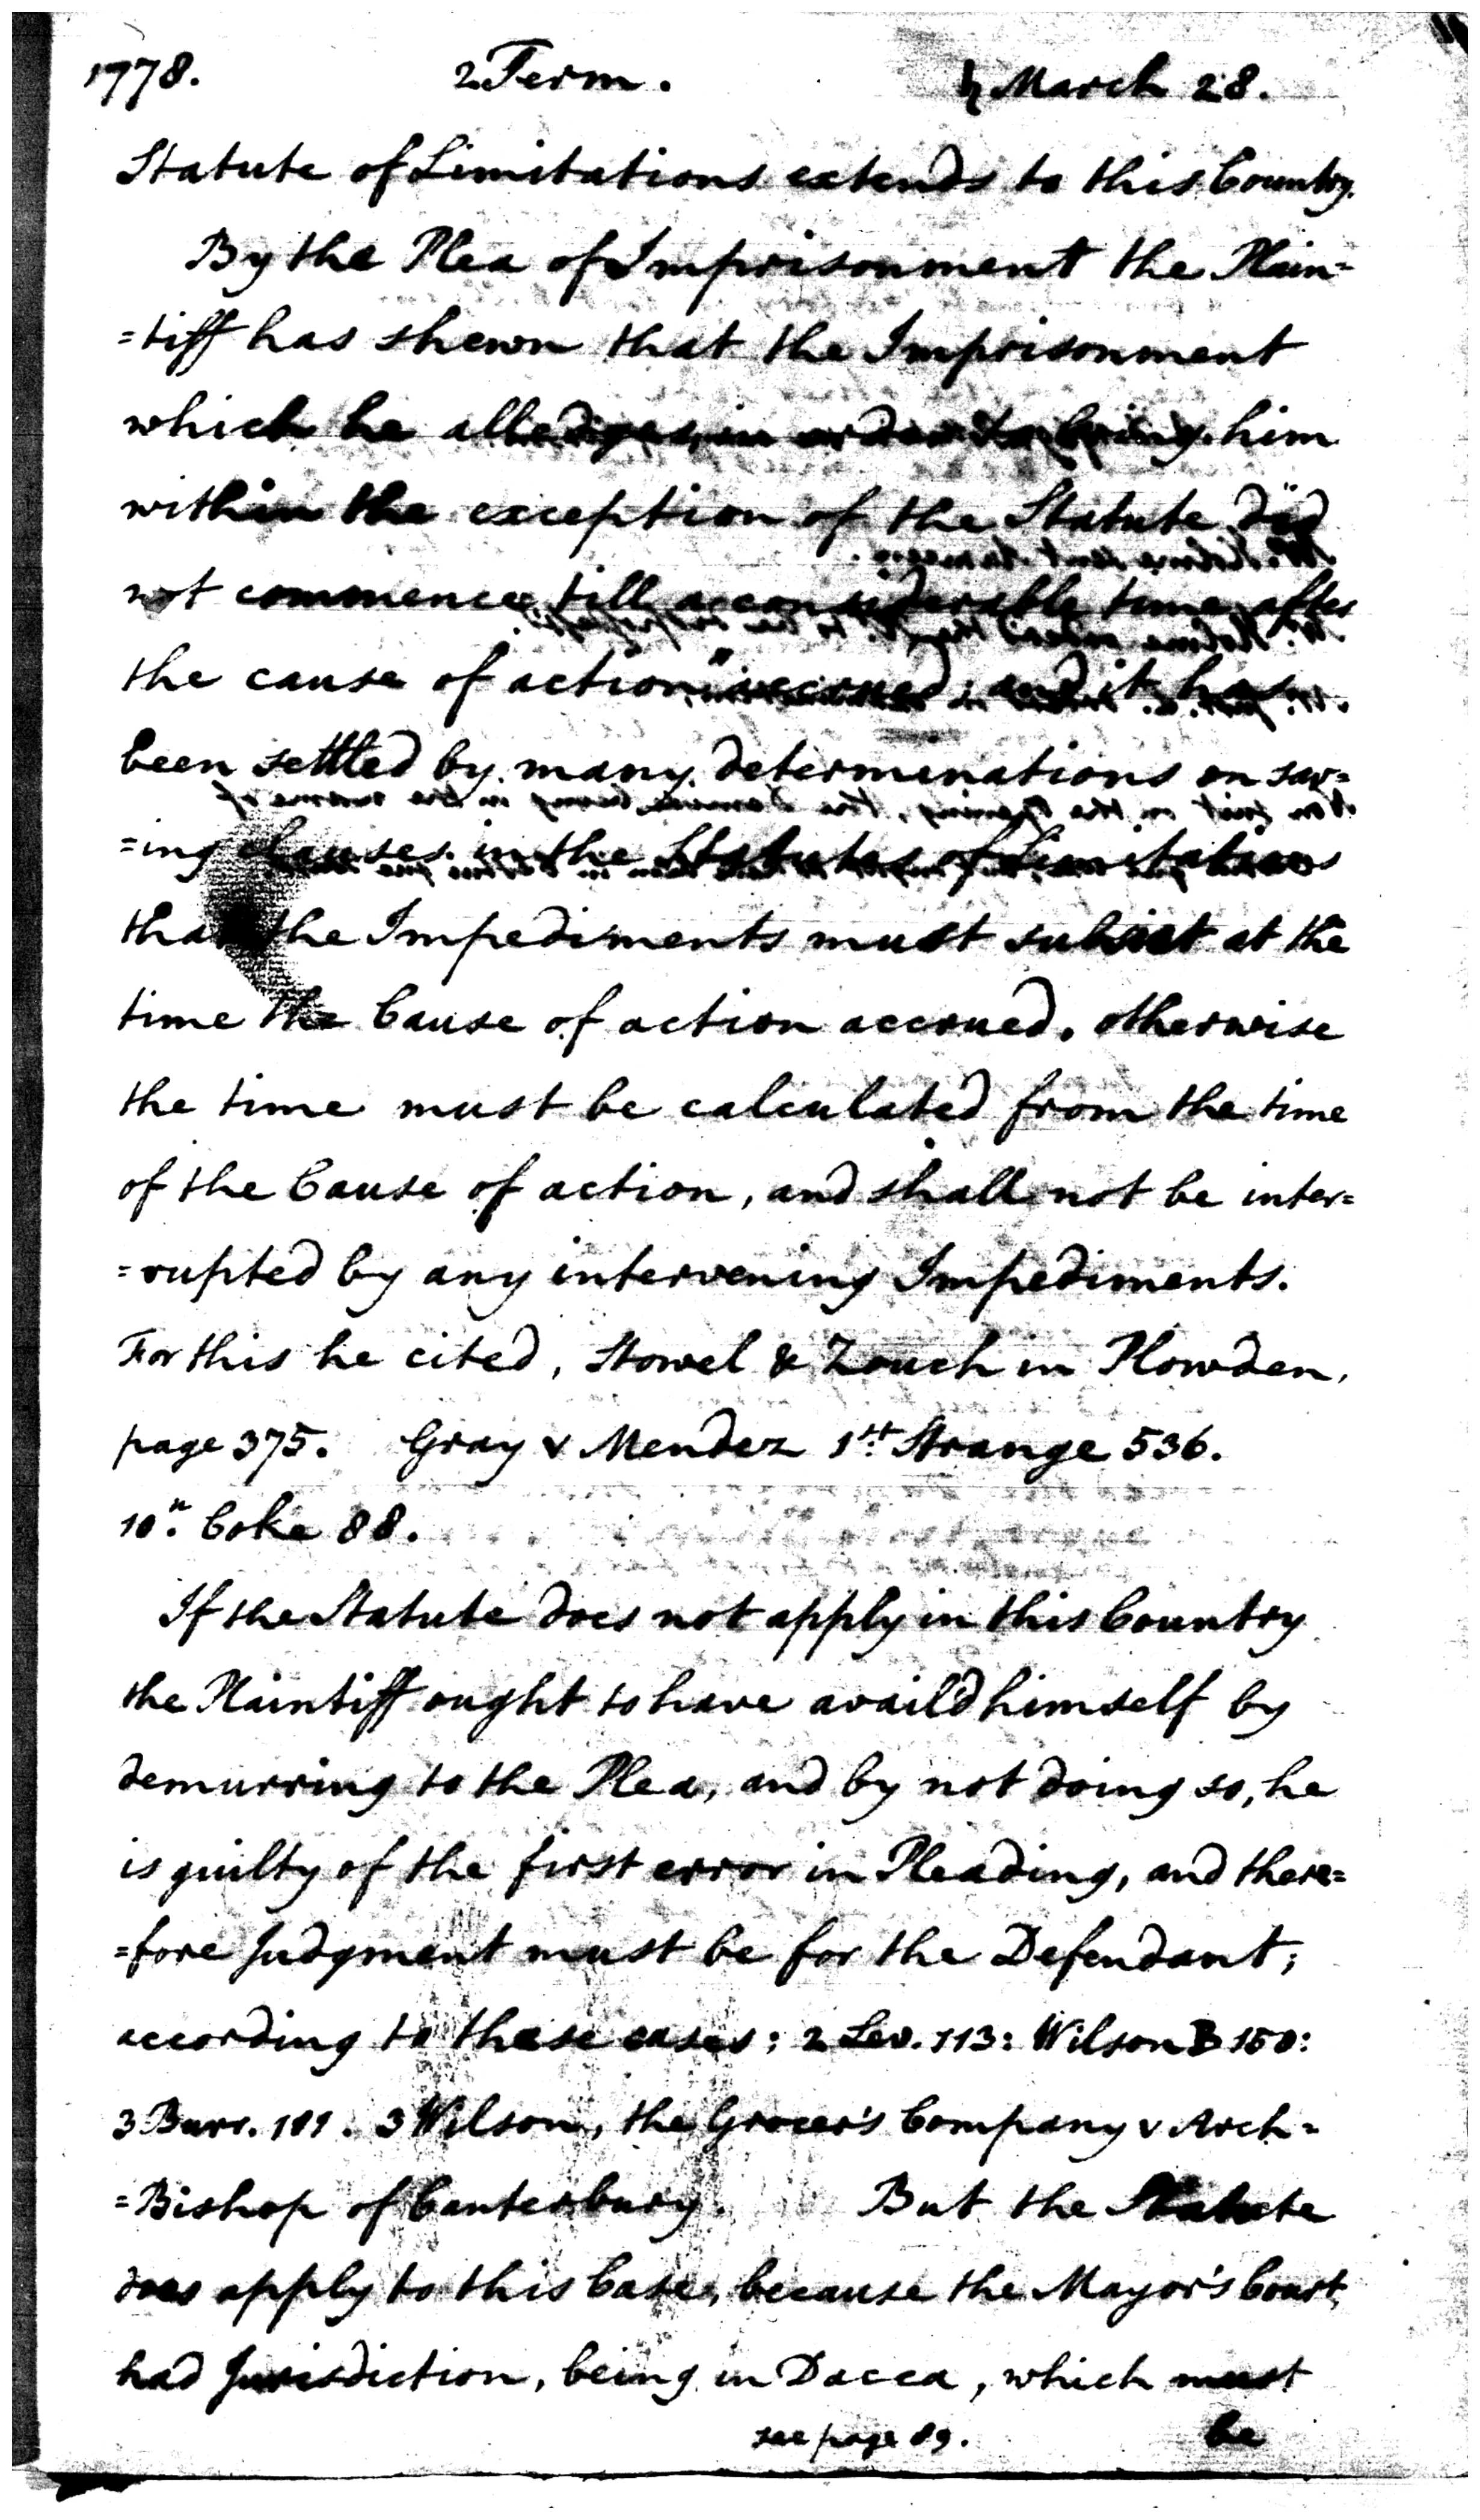 1778. 2 Term. ♄ March 28.
Statute of Limitations extends to this Country.
By the Plea of Imprisonment the Plain=
=tiff has shewn that the Imprisonment
which he alledges, in order to bring him
within the exception of the Statute did
not commence till a considerable time after
the cause of action accrued; and it has
been settled by many determinations on sav=
=ing clauses in the Statutes of Limitations
that the Impediments must subsist at the
time the Cause of action accrued. otherwise
the time must be calculated from the time
of the Cause of action, and shall not be inter=
=rupted by any intervening Impediments.
For this he cited, Stowel & Zouch in Plowden,
page 375. Gray v Mendez 1st Strange 536.
10th. Coke 88.
If the Statute does not apply in this Country
the Plaintiff ought to have avail'd himself by
demurring to the Plea, and by not doing so, he
is guilty of the first error in Pleading, and there=
=fore Judgment must be for the Defendant;
according to these cases: 2 Lev. 113: Wilson 150:
3 Burr. 3 Wilson, the Grocer's Company v Arch=
=Bishop of Canterbury. But the Statute
does apply to this Case, because the Mayor's Court,
had Jurisdiction, being in Dacca, which must
see page 89. be